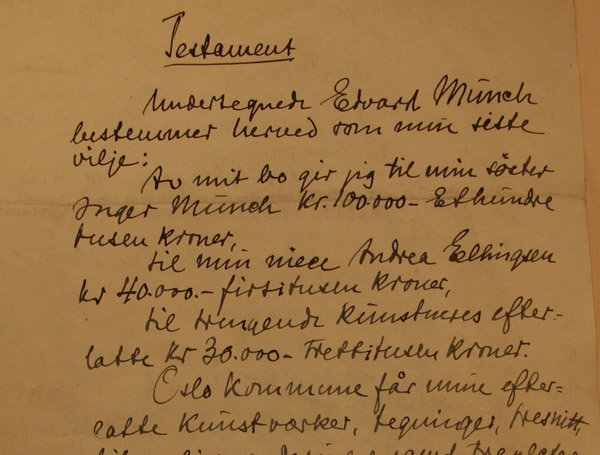 Testament
Undertegnede Edvard Münch
bestemmer herved som min siste
vilje:
Av mit bo gir jeg til min søster
Inger Münch Kr. 100.000- Ethundre
tusen kroner,
til min niece Andrea Ellingsen
kr 40.000.- firtitusen kroner,
til trengende kunstneres efter-
latte kr 30.000- Trettitusen kroner.
Oslo kommune får mine efter-
latte kunstværker, tegninger, tresnitt,
samt